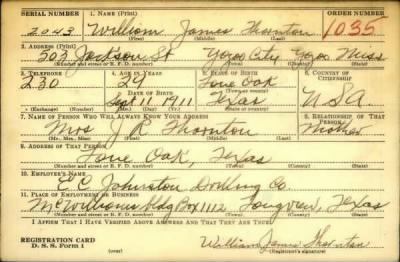 SERIAL NUMBER 1. NAME (Print) ORDER NUMBER
2043 William James Thornton 1035
(First) (Middle) (Last)
2. ADDRESS (Print)
503 Jackson St Yazoo City Yazoo Miss
(Number and street or R. F. D. number) (Town) (County) (State)
3. TELEPHONE 4. AGE IN YEARS 5. PLACE OF BIRTH 6. COUNTRY OF CITIZENSHIP
230 29 Lone Oak
DATE OF BIRTH
Sept 11 1911 Texas USA
(Exchange) (Number) (Mo.) (Day) (Yr.) (State or country)
7. NAME OF PERSON WHO WILL ALWAYS KNOW YOUR ADDRESS 8. RELATIONSHIP OF THAT PERSON
Mrs J R Thornton Mother
(Mr., Mrs., Miss) (First) (Middle) (Last)
9. ADDRESS OF THAT PERSON
Lone Oak, Texas
(Number and street or R. F. D. number) (Town) (County) (State)
10. EMPLOYER'S NAME
E C Johnston Drilling Co.
11. PLACE OF EMPLOYMENT OR BUSINESS
McWilliams Bldg Box 1112 Longview, Texas
(Number and street or R. F. D. number) (Town) (County) (State)
I AFFIRM THAT I HAVE VERIFIED ABOVE ANSWERS AND THAT THEY ARE TRUE.
REGISTRATION CARD
D. S. S. Form 1 (over) William James Thornton
(Registrant's signature)